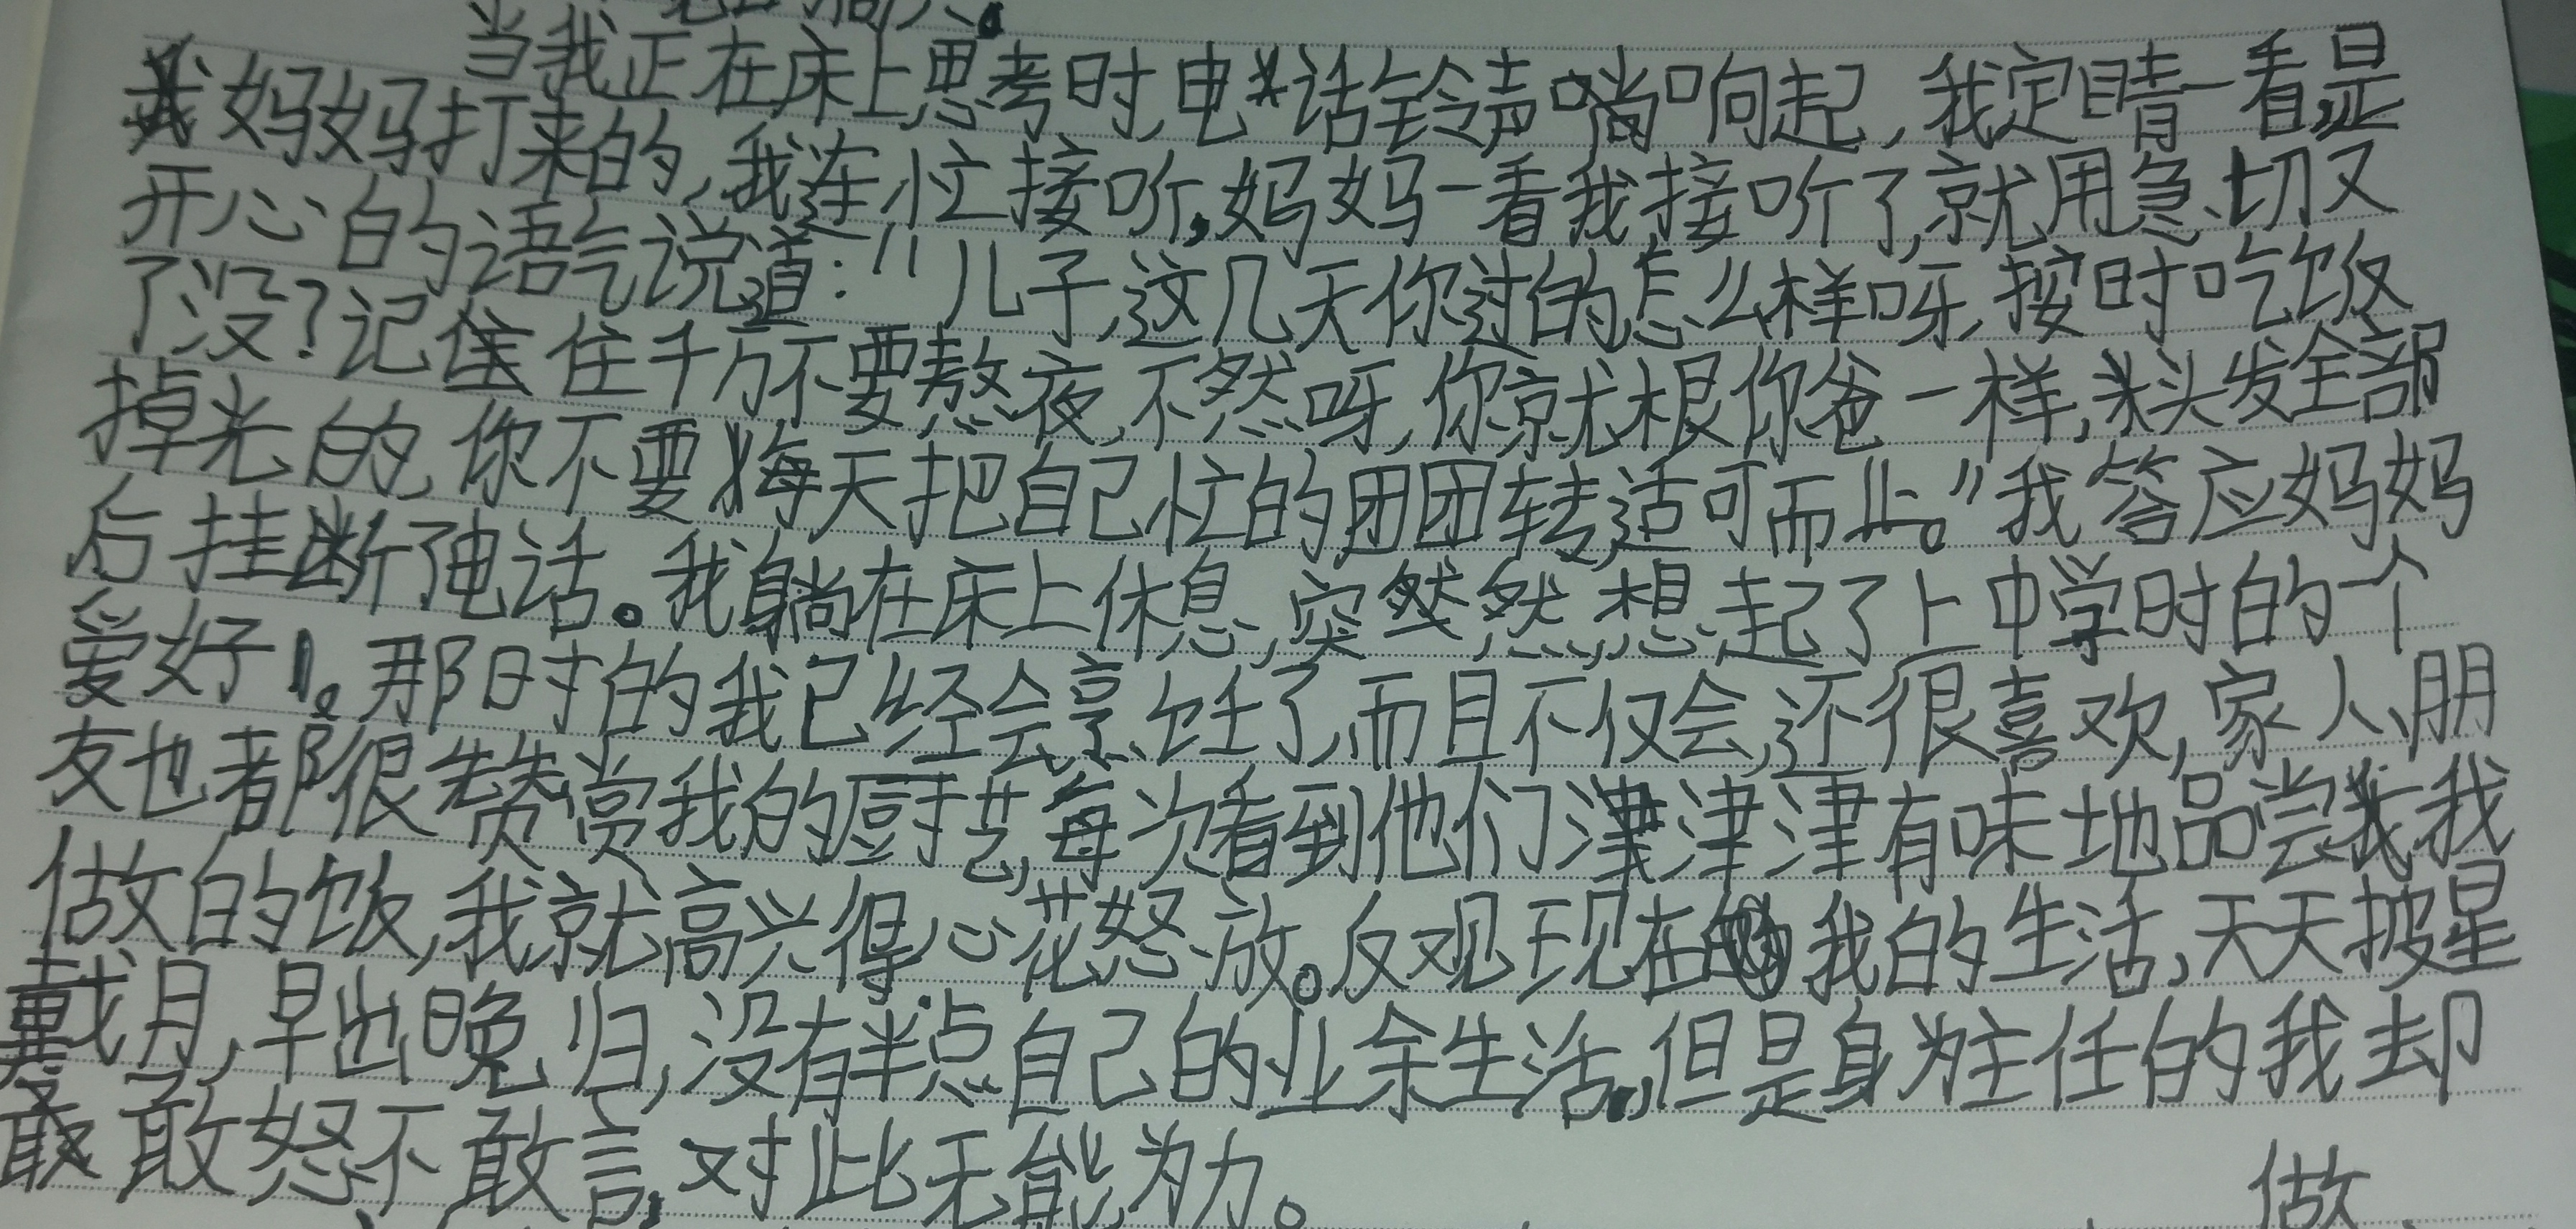 当我正在床上思考时,电话铃声响起,我定睛一看,是
我妈妈打来的,我连忙接听,妈妈一看我接听了,就用急切又
开心的语气说道:“儿子,这几天你过的怎么样呀,按时吃饭
了没?记住千万不要熬夜,不然呀,你就跟你爸一样,头发全部
掉光的,你不要每天把自己忙的团团转,适可而止。”我答应妈妈
后挂断了电话。我躺在床上休息,突然想起了上中学时的一个
爱好。那时的我已经会烹饪了,而且不仅会,还很喜欢,家人、朋
友也都很赞赏我的厨艺,每次看到他们津津有味地品尝我
做的饭,我就高兴得心花怒放。反观现在我的生活,天天披星
戴月,早出晚归,没有半点自己的业余生活,但是身为主任的我却
敢怒不敢言,对此无能为力。
做